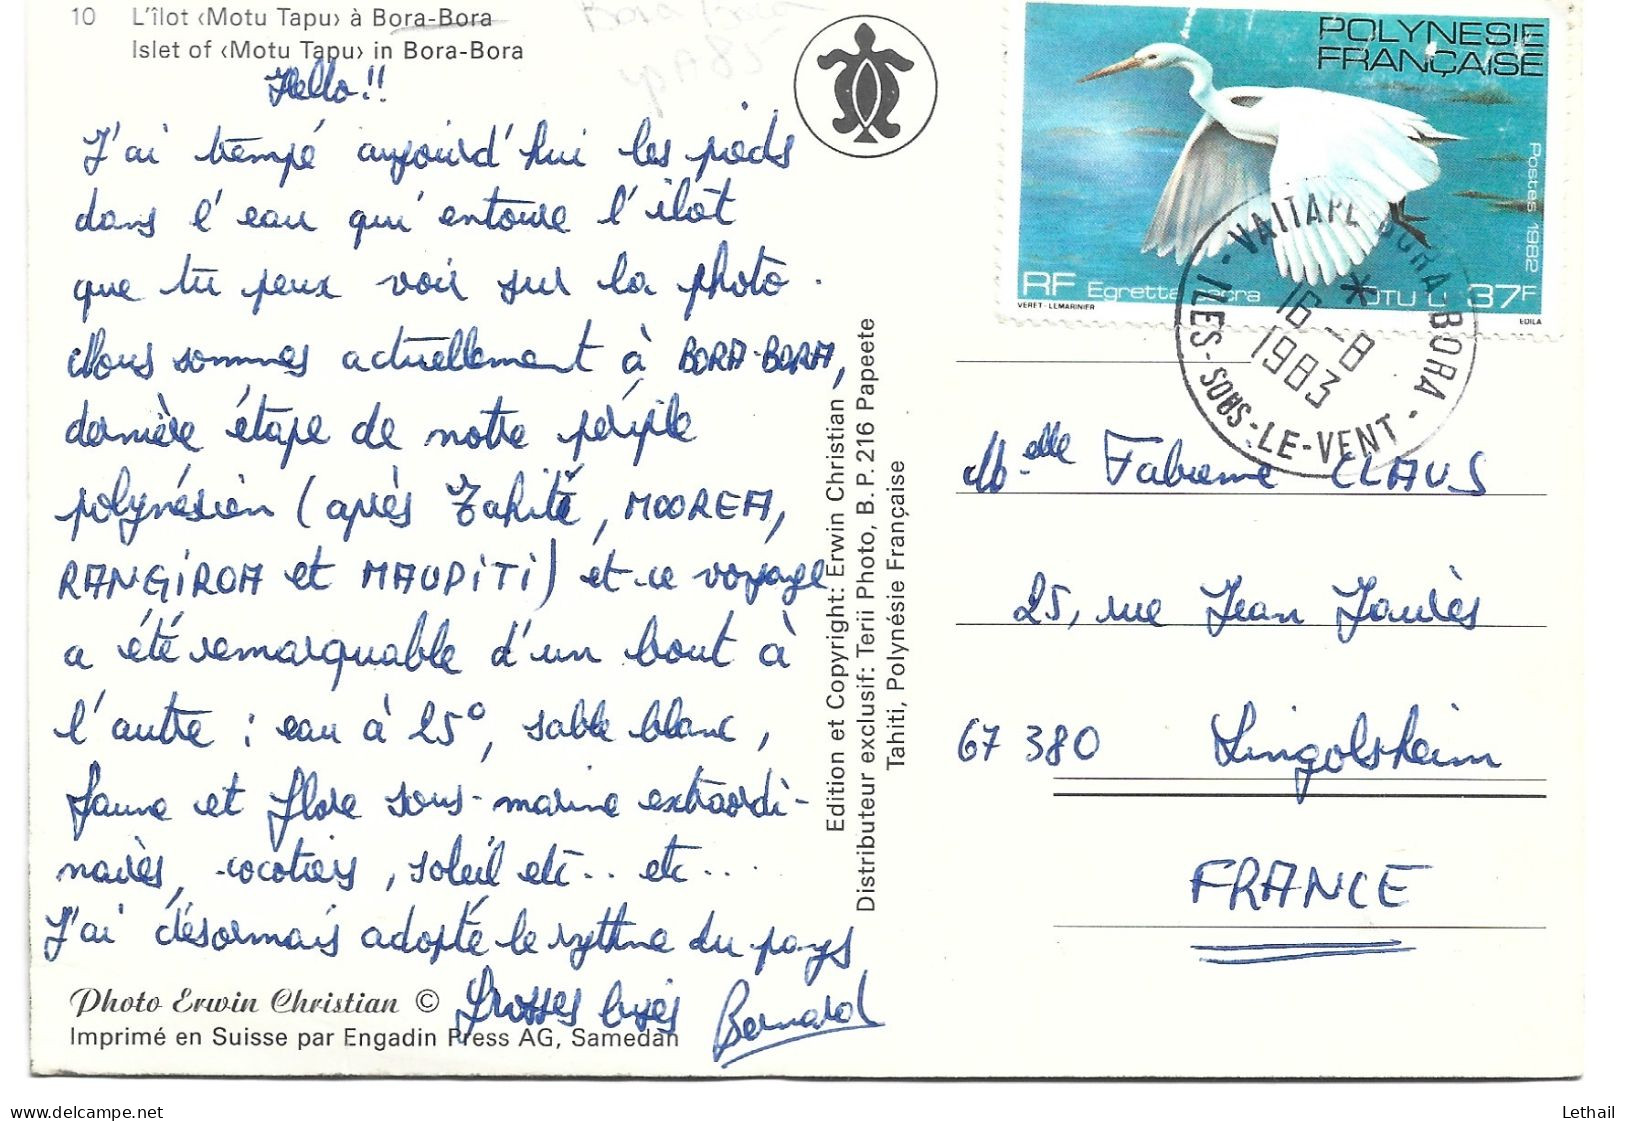 10 L'îlot ‹Motu Tapu› à Bora-Bora
Islet of ‹Motu Tapu› in Bora-Bora
Bora Bora
Hello!!
J'ai trempé aujourd'hui les pieds
dans l'eau qui entoure l'ilôt
que tu peux voir sur la photo.
Nous sommes actuellement à BORA-BORA,
dernière étape de notre périple
polynésien (après Tahiti, MOOREA,
RANGIROA et MAUPITI) et ce voyage
a été remarquable d'un bout à
l'autre : eau à 25°, sable blanc,
faune et flore sous-marine extraordi-
naires, cocotiers, soleil etc... etc...
J'ai désormais adopté le rythme du pays
Grosses bises Bernard
Photo Erwin Christian ©
Imprimé en Suisse par Engadin Press AG, Samedan
Edition et Copyright: Erwin Christian
Distributeur exclusif: Terii Photo, B. P. 216 Papeete
Tahiti, Polynésie Française
POLYNESIE
FRANÇAISE
Postes 1982
RF Egretta sacra OTU U 37F
VERET-LEMARINIER
EDILA
VAITAPE BORA-BORA
16-8
1983
ILES-SOUS-LE-VENT
Melle Fabienne CLAUS
25, rue Jean Jaurès
67 380 Lingolsheim
FRANCE
delcampe.net
Lethail